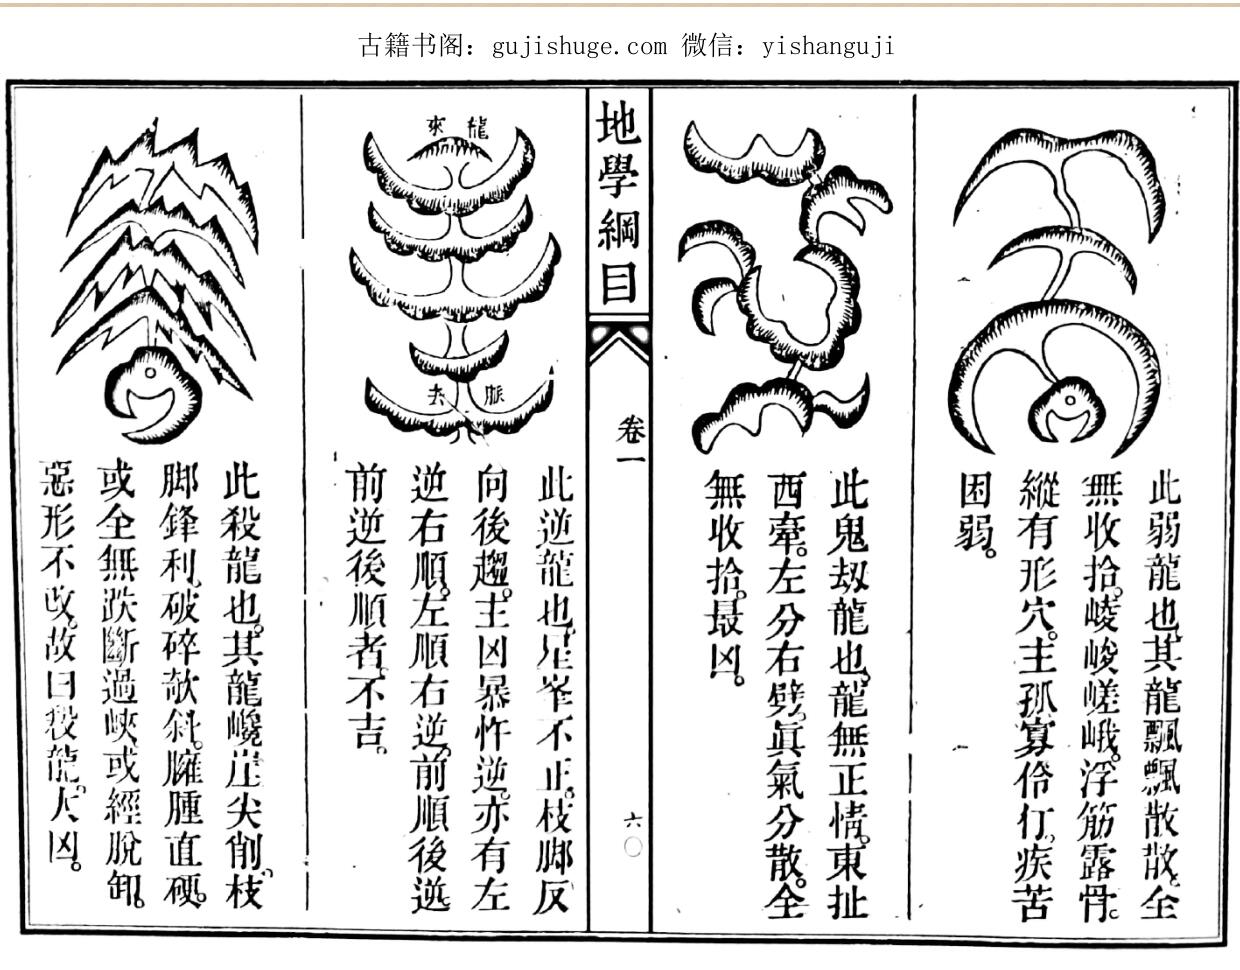 古籍书阁：gujishuge.com 微信：yishanguji
此弱龍也其龍飄飄散散全
無收拾崚峻嵯峨浮筋露骨
縱有形穴主孤寡伶仃疾苦
困弱
此鬼刼龍也龍無正情東扯
西牽左分右劈眞氣分散全
無收拾最凶
地學綱目
卷一
六〇
龍
來
脈
去
此逆龍也星峯不正枝脚反
向後趨主凶暴忤逆亦有左
逆右順左順右逆前順後逆
前逆後順者不吉
此殺龍也其龍巉崖尖削枝
脚鋒利破碎欹斜臃腫直硬
或全無跌斷過峽或經脫卸
惡形不改故曰殺龍大凶